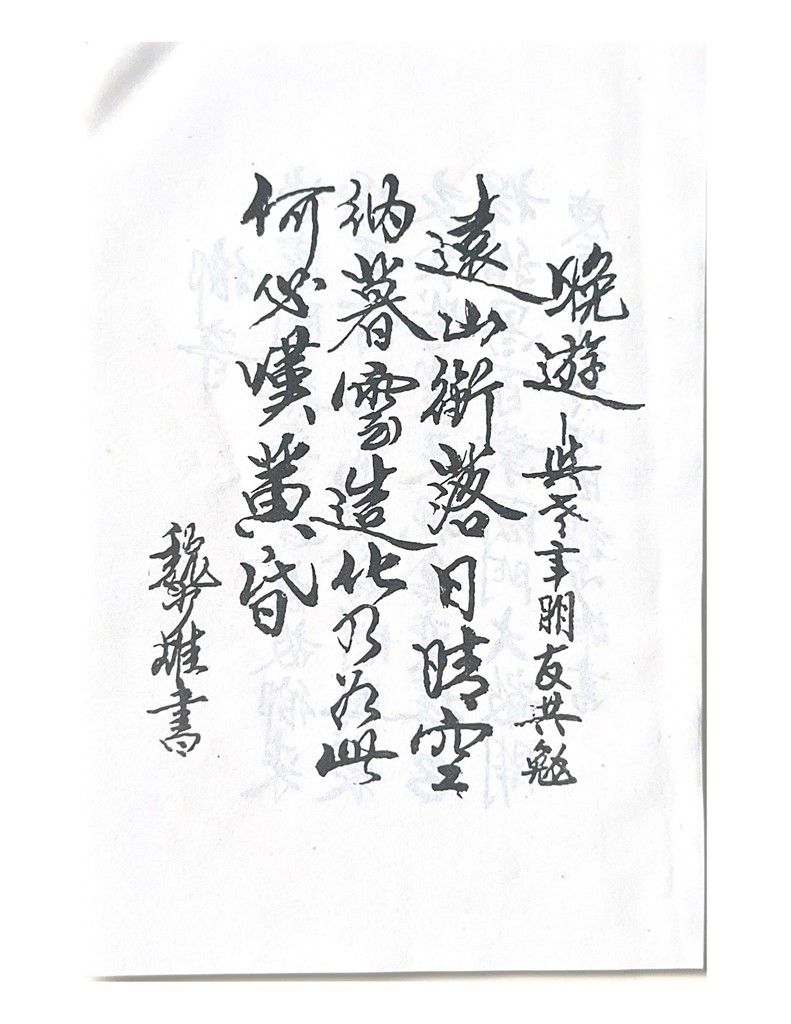 晚遊-與老年朋友共勉
遠山銜落日晴空
納暮雲造化乃若此
何必嘆黃昏
黎雄書